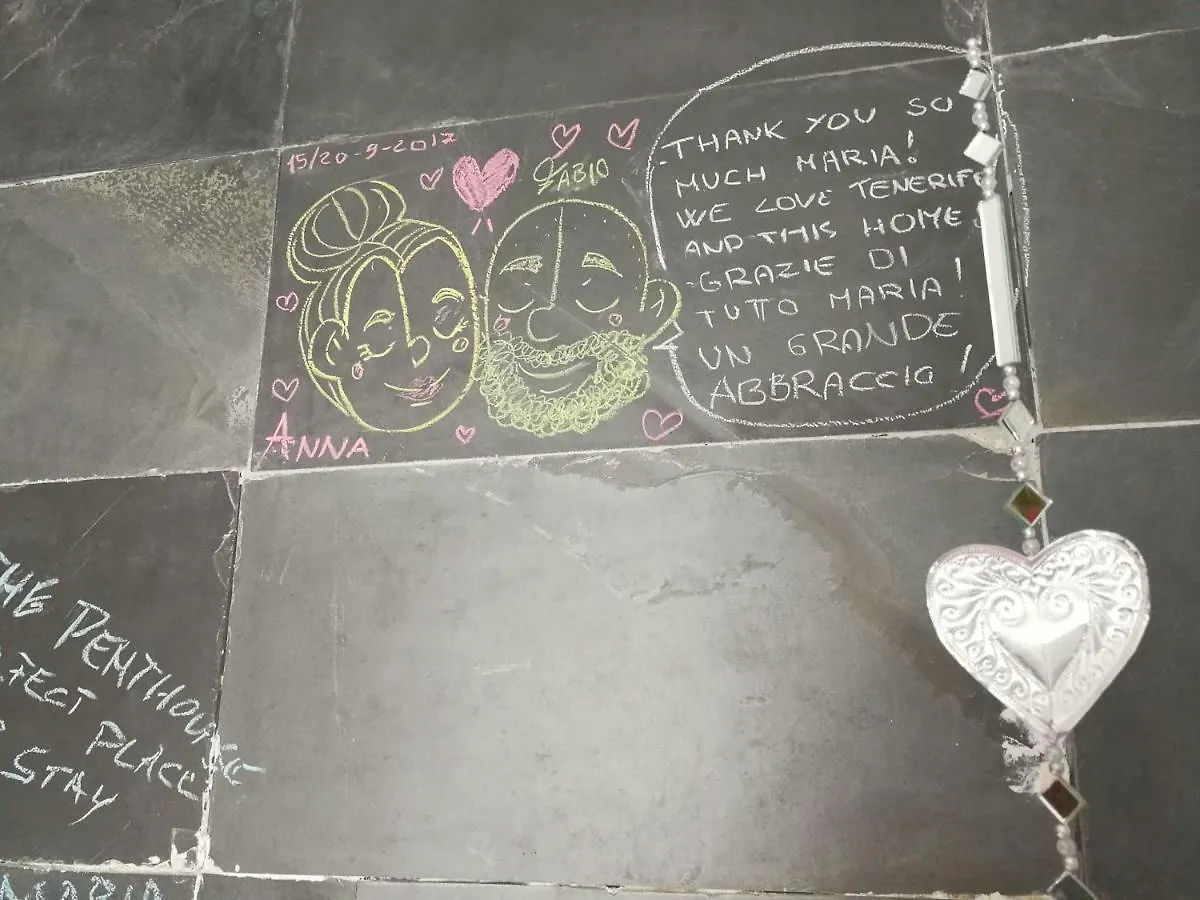 15/20-9-2017
FABIO
ANNA
-THANK YOU SO
MUCH MARIA!
WE LOVE TENERIFE
AND THIS HOME
-GRAZIE DI
TUTTO MARIA!
UN GRANDE
ABBRACCIO!
THE PENTHOUSE
PLACE
STAY